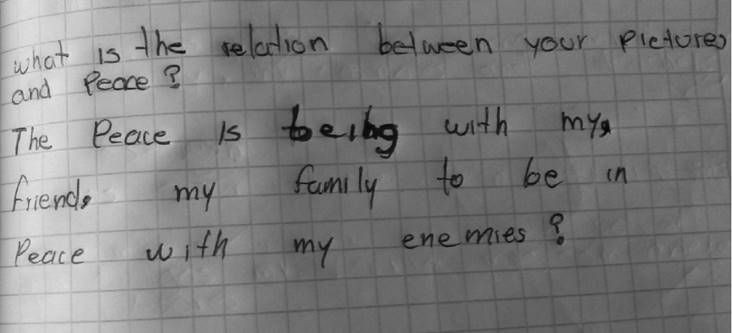 what is the relation between your pictures
and Peace ?
The Peace is being with my
friends my family to be in
Peace with my enemies ?